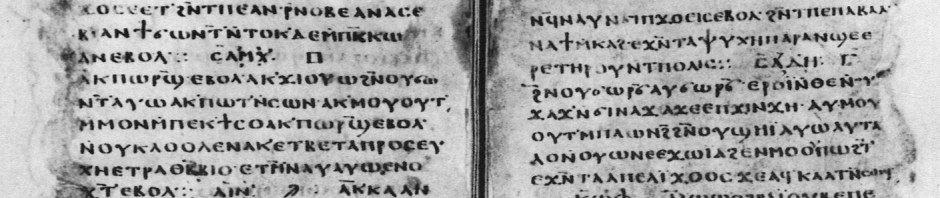 ϫⲟⲥⲉⲉⲧϩⲛⲧⲡⲉⲁⲛⲣⲛⲟⲃⲉⲁⲛⲁⲥⲉ
ⲃⲓⲁⲛϯϭⲱⲛⲧⲛⲧⲟⲕⲇⲉⲙⲡⲕⲕⲱ
ⲁⲛⲉⲃⲟⲗ ⲥⲁⲙⲭ
ⲁⲕⲡⲱⲣϣⲉⲃⲟⲗⲁⲕϫⲓⲟⲩⲱϩⲛⲟⲩϭⲱ
ⲛⲧⲁⲩⲱⲁⲕⲡⲱⲧⲛⲥⲱⲛ·ⲁⲕⲙⲟⲩⲟⲩⲧ
ⲙⲙⲟⲛⲙⲡⲉⲕϯⲥⲟⲁⲕⲡⲱⲣϣⲉⲃⲟⲗ
ⲛⲟⲩⲕⲗⲟⲟⲗⲉⲛⲁⲕⲉⲧⲃⲉⲧⲁⲡⲣⲟⲥⲉⲩ
ⲭⲏⲉⲧⲣⲁⲑⲃⲃⲓⲟⲉⲧⲙⲛⲁⲩⲁⲩⲱⲉⲛⲟ
ϫⲧⲉⲃⲟⲗ ⲁⲓⲛ ⲁⲕⲕⲁⲁⲛ
ⲛϥⲛⲁⲩⲛϭⲓⲡϫⲟⲉⲓⲥⲉⲃⲟⲗϩⲛⲧⲡⲉⲡⲁⲃⲁⲗ
ⲛⲁϯⲙⲕⲁϩⲉϫⲛⲧⲁⲯⲩⲭⲏⲡⲁⲣⲁⲛϣⲉⲉ
ⲣⲉⲧⲏⲣⲟⲩⲛⲧⲡⲟⲗⲓⲥ
ϩⲛⲟⲩϭⲱⲣϭⲁⲩϭⲱⲣϭⲉⲣⲟⲓⲛⲑⲉⲛⲟⲩ
ϫⲁϫⲛϭⲓⲛⲁϫⲁϫⲉⲉⲡϫⲓⲛϫⲏ·ⲁⲩⲙⲟⲩ
ⲟⲩⲧⲙⲡⲁⲱⲛϩϩⲛⲟⲩϣⲏⲓⲁⲩⲱⲁⲩⲧⲁ
ⲗⲟⲛⲟⲩⲱⲛⲉⲉϫⲱⲓⲁϩⲉⲛⲙⲟⲟⲩⲡⲱⲛ
ⲉϫⲛⲧⲁⲁⲡⲉⲁⲓϫⲟⲟⲥϫⲉⲁⲩⲕⲁⲁⲧⲛⲥⲱⲟⲩ